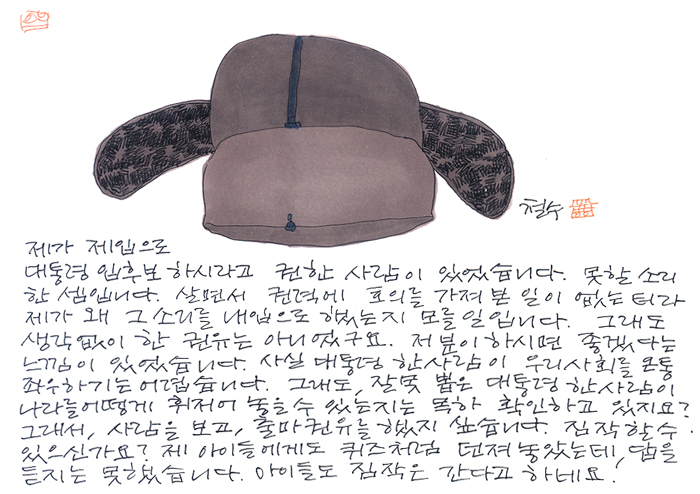 철수
제가 제입으로
대통령 입후보 하시라고 권한 사람이 있었습니다. 못할 소리
한 셈입니다. 살면서 권력에 호의를 가져 본 일이 없는 터라
제가 왜 그 소리를 내입으로 했는지 모를 일입니다. 그래도
생각없이 한 권유는 아니었구요. 저분이 하시면 좋겠다는
느낌이 있었습니다. 사실 대통령 한사람이 우리사회를 온통
좌우하기는 어렵습니다. 그래도, 잘못 뽑은 대통령 한사람이
나라를 어떻게 휘저어 놓을 수 있는지는 목하 확인하고 있지요?
그래서, 사람을 보고, 출마권유를 했지 싶습니다. 짐작할 수
있으신가요? 제 아이들에게도 퀴즈처럼 던져놓았는데, 답을
듣지는 못했습니다. 아이들도 짐작은 간다고 하네요!